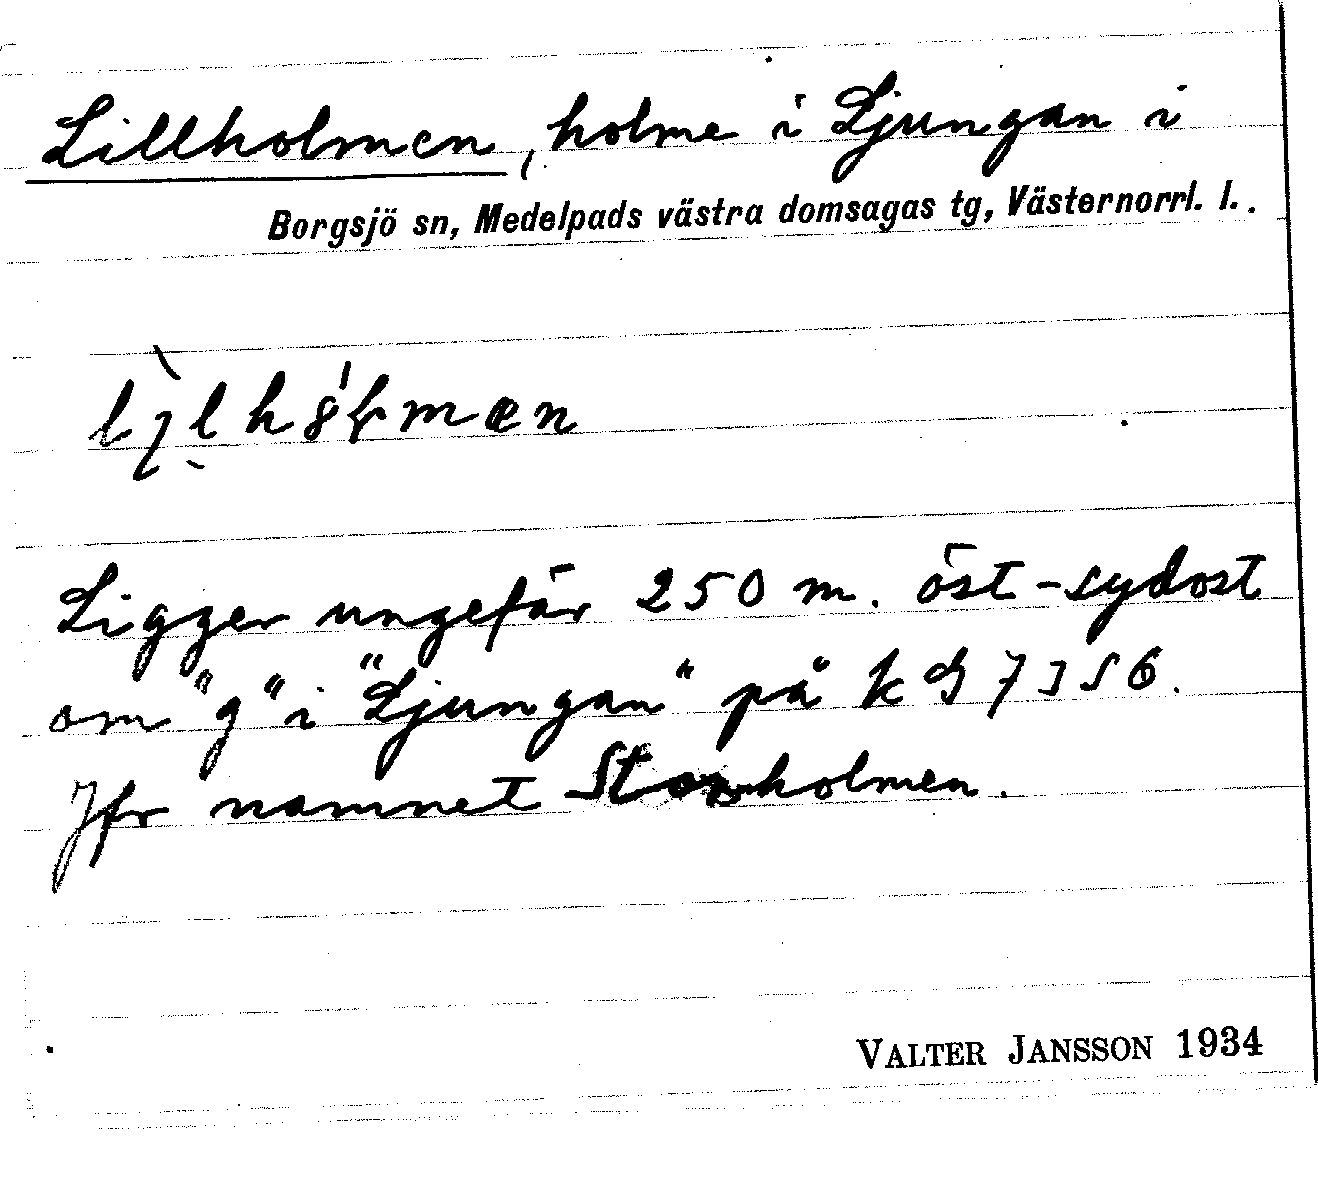 Lillholmen, holme i Ljungan i
Borgsjö sn, Medelpads västra domsagas tg, Västernorrl. l..
Ligger ungefär 250 m. öst-sydost
om "g" i "Ljungan" på
Jfr namnet Storholmen.
VALTER JANSSON 1934